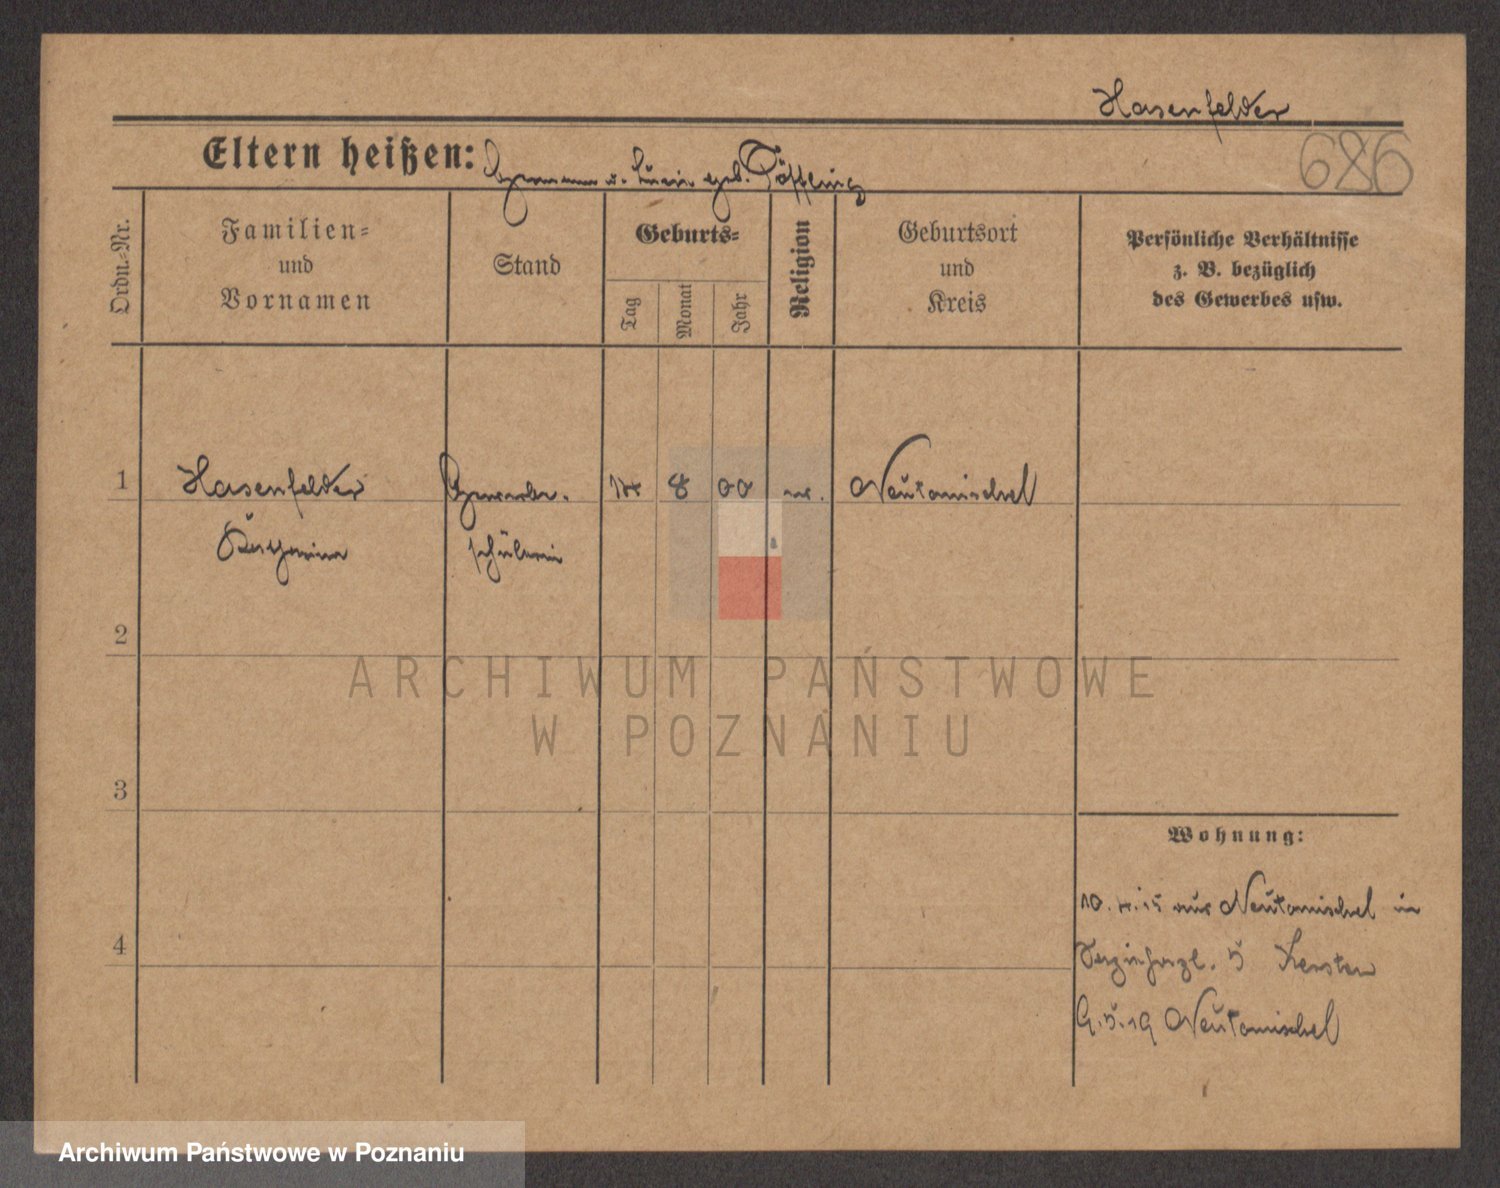 Hasenfelder
686
Eltern heißen: Hermann u. geb.
Ordn.=Nr.
Familien=
und
Vornamen
Stand
Geburts=
Tag
Monat
Jahr
Religion
Geburtsort
und
Kreis
Persönliche Verhältnisse
z. B. bezüglich
des Gewerbes usw.
1
Hasenfelder
Gewerbe-
14
8
00
Neutomischel
schülerin
2
ARCHIWUM PAŃSTWOWE
W POZNANIU
3
Wohnung:
10. 4. 15 aus Neutomischel in
4
5 Kersten
9. 5. 19 Neutomischel
Archiwum Państwowe w Poznaniu